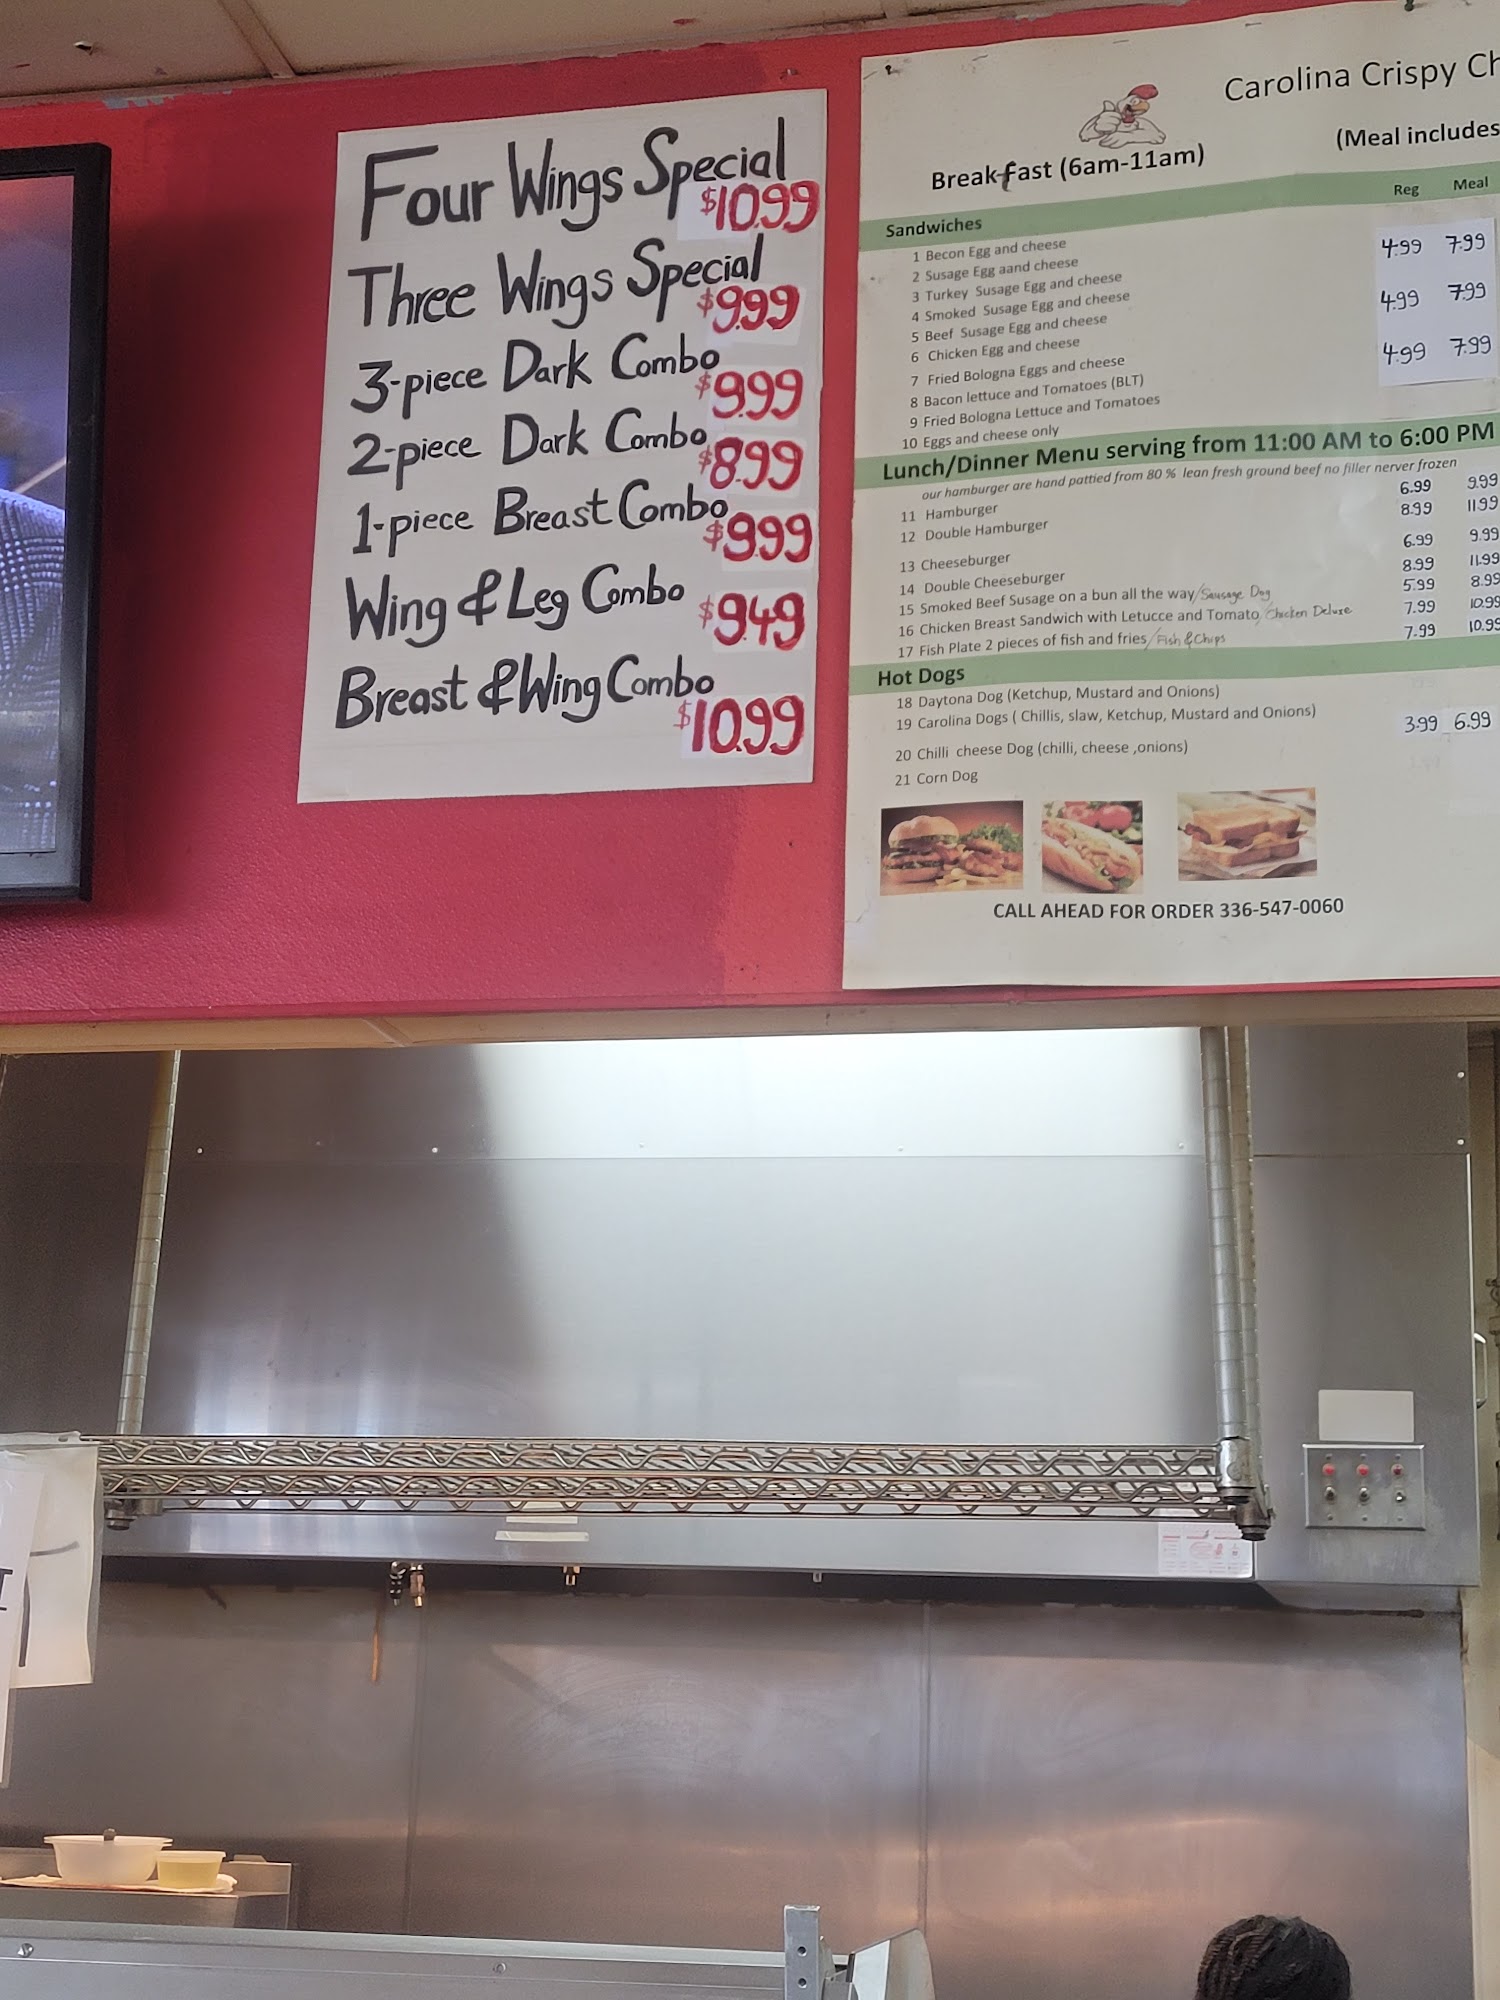 Four Wings Special
$10.99
Three Wings Special
$9.99
3-piece Dark Combo
$9.99
2-piece Dark Combo
$8.99
1-piece Breast Combo
$9.99
Wing & Leg Combo
$9.49
Breast & Wing Combo
$10.99
Carolina Crispy Ch
(Meal includes
Breakfast (6am-11am)
Reg Meal
Sandwiches
1 Becon Egg and cheese
4.99 7.99
2 Susage Egg aand cheese
3 Turkey Susage Egg and cheese
4.99 7.99
4 Smoked Susage Egg and cheese
5 Beef Susage Egg and cheese
4.99 7.99
6 Chicken Egg and cheese
7 Fried Bologna Eggs and cheese
8 Bacon lettuce and Tomatoes (BLT)
9 Fried Bologna Lettuce and Tomatoes
10 Eggs and cheese only
Lunch/Dinner Menu serving from 11:00 AM to 6:00 PM
our hamburger are hand pattied from 80 % lean fresh ground beef no filler nerver frozen
11 Hamburger 6.99 9.99
12 Double Hamburger 8.99 11.99
13 Cheeseburger 6.99 9.99
14 Double Cheeseburger 8.99 11.99
15 Smoked Beef Susage on a bun all the way/Sausage Dog 5.99 8.99
16 Chicken Breast Sandwich with Letucce and Tomato/Chicken Deluxe 7.99 10.99
17 Fish Plate 2 pieces of fish and fries/Fish & Chips 7.99 10.99
Hot Dogs
18 Daytona Dog (Ketchup, Mustard and Onions)
19 Carolina Dogs ( Chillis, slaw, Ketchup, Mustard and Onions)
3.99 6.99
20 Chilli cheese Dog (chilli, cheese ,onions)
21 Corn Dog
CALL AHEAD FOR ORDER 336-547-0060